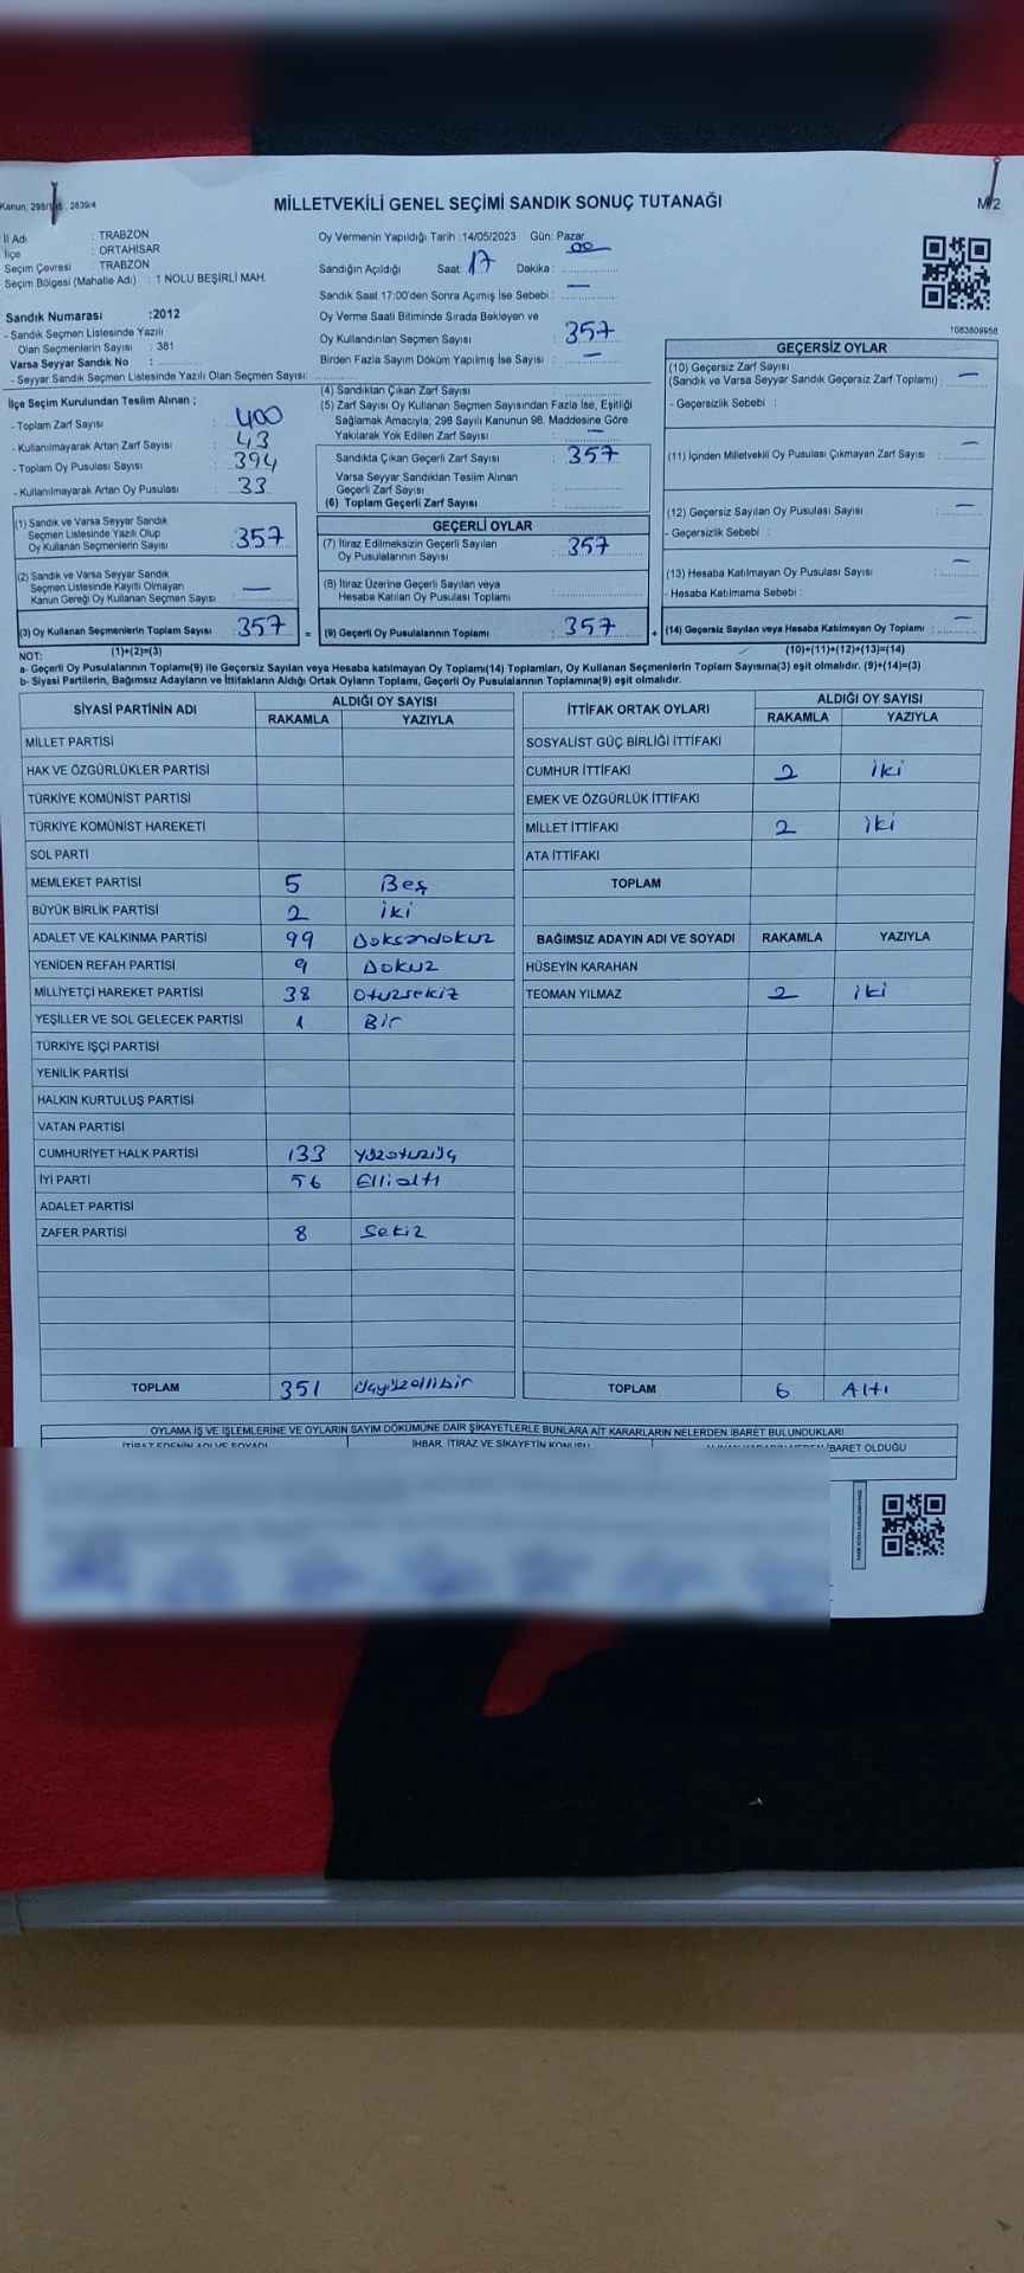 Kanun: 298/105 ; 2839/4
MİLLETVEKİLİ GENEL SEÇİMİ SANDIK SONUÇ TUTANAĞI
M/2
İl Adı : TRABZON
İlçe : ORTAHİSAR
Seçim Çevresi : TRABZON
Seçim Bölgesi (Mahalle Adı) : 1 NOLU BEŞİRLİ MAH.
Oy Vermenin Yapıldığı Tarih :14/05/2023 Gün: Pazar
Sandığın Açıldığı Saat: 17 Dakika : 00
Sandık Saat 17:00'den Sonra Açımış İse Sebebi : —
Oy Verme Saati Bitiminde Sırada Bekleyen ve
Oy Kullandırılan Seçmen Sayısı : 357
Birden Fazla Sayım Döküm Yapılmış İse Sayısı : —
1083809958
Sandık Numarası :2012
- Sandık Seçmen Listesinde Yazılı
Olan Seçmenlerin Sayısı : 381
Varsa Seyyar Sandık No :
- Seyyar Sandık Seçmen Listesinde Yazılı Olan Seçmen Sayısı:
İlçe Seçim Kurulundan Teslim Alınan ;
- Toplam Zarf Sayısı : 400
- Kullanılmayarak Artan Zarf Sayısı : 43
- Toplam Oy Pusulası Sayısı : 394
- Kullanılmayarak Artan Oy Pusulası : 33
(1) Sandık ve Varsa Seyyar Sandık
Seçmen Listesinde Yazılı Olup
Oy Kullanan Seçmenlerin Sayısı : 357
(2) Sandık ve Varsa Seyyar Sandık
Seçmen Listesinde Kayıtlı Olmayan
Kanun Gereği Oy Kullanan Seçmen Sayısı : —
(3) Oy Kullanan Seçmenlerin Toplam Sayısı : 357 =
(1)+(2)=(3)
(4) Sandıktan Çıkan Zarf Sayısı :
(5) Zarf Sayısı Oy Kullanan Seçmen Sayısından Fazla İse, Eşitliği
Sağlamak Amacıyla; 298 Sayılı Kanunun 98. Maddesine Göre
Yakılarak Yok Edilen Zarf Sayısı : —
Sandıkta Çıkan Geçerli Zarf Sayısı : 357
Varsa Seyyar Sandıktan Teslim Alınan
Geçerli Zarf Sayısı :
(6) Toplam Geçerli Zarf Sayısı :
GEÇERLİ OYLAR
(7) İtiraz Edilmeksizin Geçerli Sayılan
Oy Pusulalarının Sayısı : 357
(8) İtiraz Üzerine Geçerli Sayılan veya
Hesaba Katılan Oy Pusulası Toplamı :
(9) Geçerli Oy Pusulalarının Toplamı : 357 +
GEÇERSİZ OYLAR
(10) Geçersiz Zarf Sayısı
(Sandık ve Varsa Seyyar Sandık Geçersiz Zarf Toplamı) : —
- Geçersizlik Sebebi :
(11) İçinden Milletvekili Oy Pusulası Çıkmayan Zarf Sayısı : —
(12) Geçersiz Sayılan Oy Pusulası Sayısı : —
- Geçersizlik Sebebi :
(13) Hesaba Katılmayan Oy Pusulası Sayısı : —
- Hesaba Katılmama Sebebi :
(14) Geçersiz Sayılan veya Hesaba Katılmayan Oy Toplamı : —
(10)+(11)+(12)+(13)=(14)
NOT:
a- Geçerli Oy Pusulalarının Toplamı(9) ile Geçersiz Sayılan veya Hesaba katılmayan Oy Toplamı(14) Toplamları, Oy Kullanan Seçmenlerin Toplam Sayısına(3) eşit olmalıdır. (9)+(14)=(3)
b- Siyasi Partilerin, Bağımsız Adayların ve İttifakların Aldığı Ortak Oyların Toplamı, Geçerli Oy Pusulalarının Toplamına(9) eşit olmalıdır.
SİYASİ PARTİNİN ADI ALDIĞI OY SAYISI
RAKAMLA YAZIYLA
MİLLET PARTİSİ
HAK VE ÖZGÜRLÜKLER PARTİSİ
TÜRKİYE KOMÜNİST PARTİSİ
TÜRKİYE KOMÜNİST HAREKETİ
SOL PARTİ
MEMLEKET PARTİSİ 5 Beş
BÜYÜK BİRLİK PARTİSİ 2 iki
ADALET VE KALKINMA PARTİSİ 99 Doksandokuz
YENİDEN REFAH PARTİSİ 9 Dokuz
MİLLİYETÇİ HAREKET PARTİSİ 38 Otuzsekiz
YEŞİLLER VE SOL GELECEK PARTİSİ 1 Bir
TÜRKİYE İŞÇİ PARTİSİ
YENİLİK PARTİSİ
HALKIN KURTULUŞ PARTİSİ
VATAN PARTİSİ
CUMHURİYET HALK PARTİSİ 133 Yüzotuzüç
İYİ PARTİ 56 Ellialtı
ADALET PARTİSİ
ZAFER PARTİSİ 8 Sekiz
TOPLAM 351 Üçyüzellibir
İTTİFAK ORTAK OYLARI ALDIĞI OY SAYISI
RAKAMLA YAZIYLA
SOSYALİST GÜÇ BİRLİĞİ İTTİFAKI
CUMHUR İTTİFAKI 2 iki
EMEK VE ÖZGÜRLÜK İTTİFAKI
MİLLET İTTİFAKI 2 iki
ATA İTTİFAKI
TOPLAM
BAĞIMSIZ ADAYIN ADI VE SOYADI RAKAMLA YAZIYLA
HÜSEYİN KARAHAN
TEOMAN YILMAZ 2 iki
TOPLAM 6 Altı
OYLAMA İŞ VE İŞLEMLERİNE VE OYLARIN SAYIM DÖKÜMÜNE DAİR ŞİKAYETLERLE BUNLARA AİT KARARLARIN NELERDEN İBARET BULUNDUKLARI
İTİRAZ EDENİN ADI VE SOYADI İHBAR, İTİRAZ VE ŞİKAYETİN KONUSU İBARET OLDUĞU